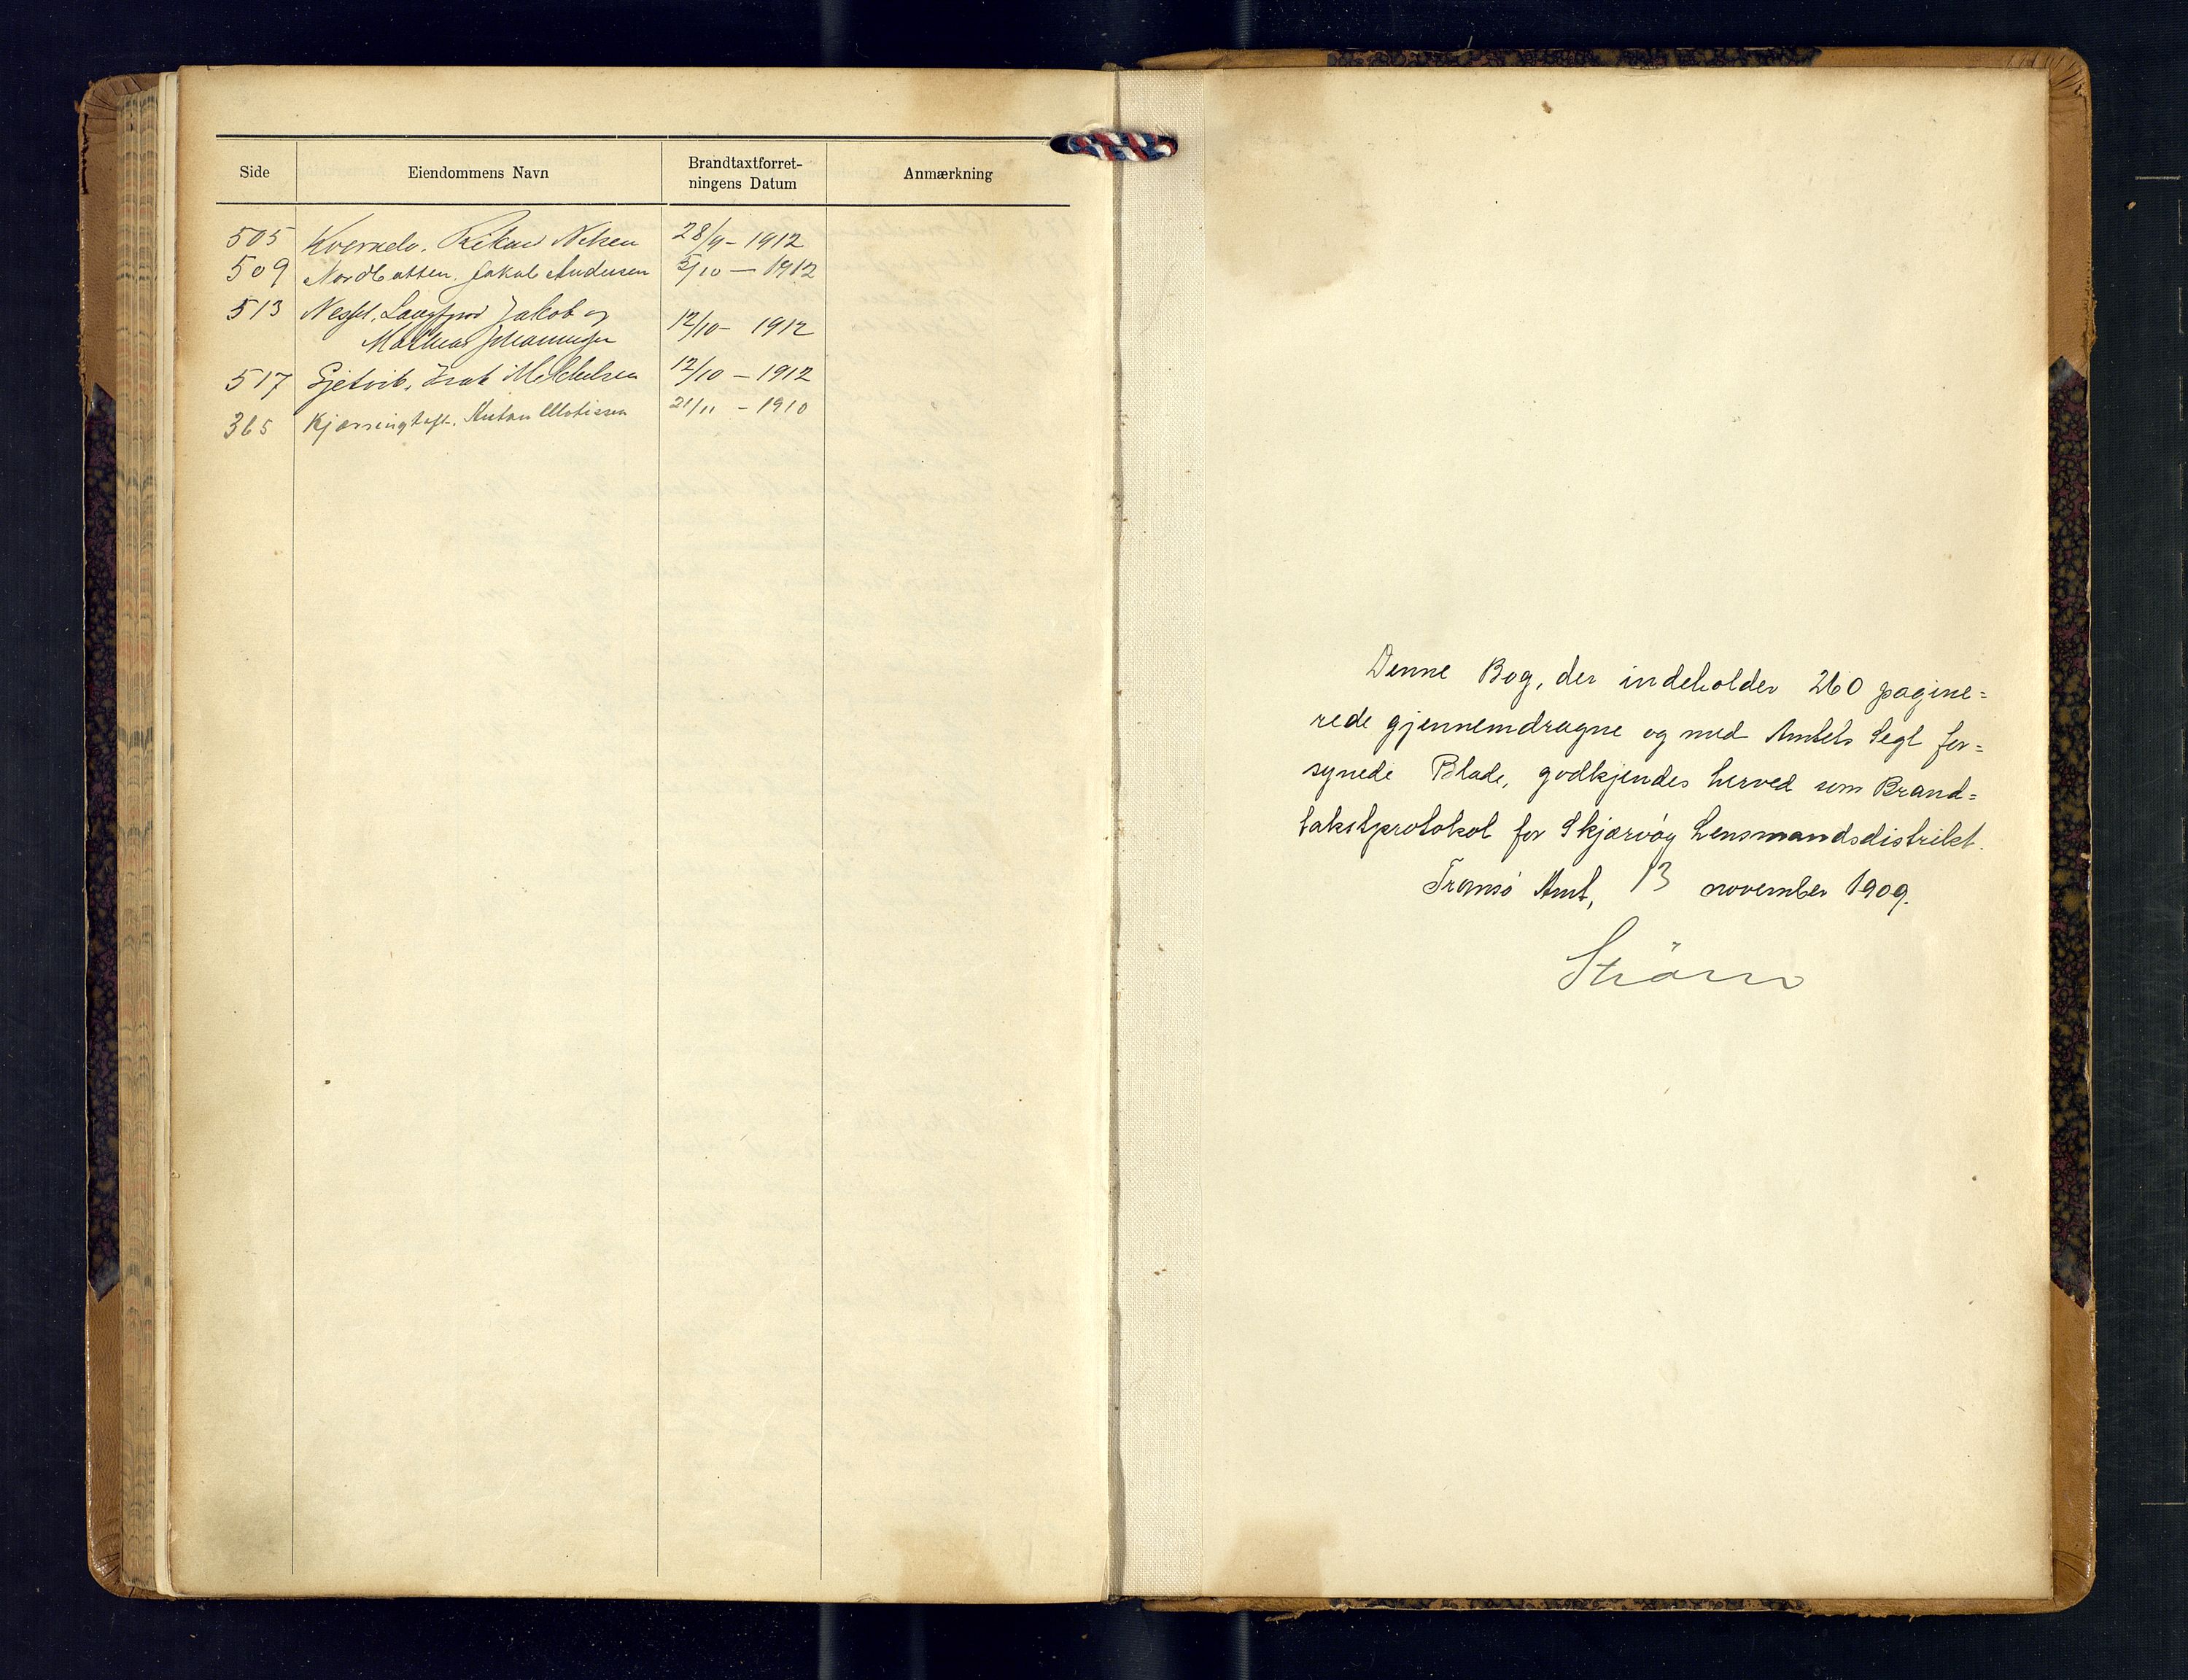 Side Eiendommens Navn Brandtaxtforret-
ningens Datum Anmærkning
505 Rikard Nilsen 28/9 - 1912
509 Nordbotten. Jakob Andersen 5/10 — 1912
513 Langfjord Jakob og
Mathias Johannesen 12/10 - 1912
517 Gjetvik. Isak Mikkelsen 12/10 - 1912
365 Anton Motissen 21/11 - 1910
Denne Bog, der indeholder 260 pagine=
rede gjennemdragne og med Amtets Segl for=
synede Blade, godkjendes herved som Brand=
takstprotokol for Skjærvøy Lensmandsdistrikt.
Tromsö Amt, 13 november 1909.
Ström